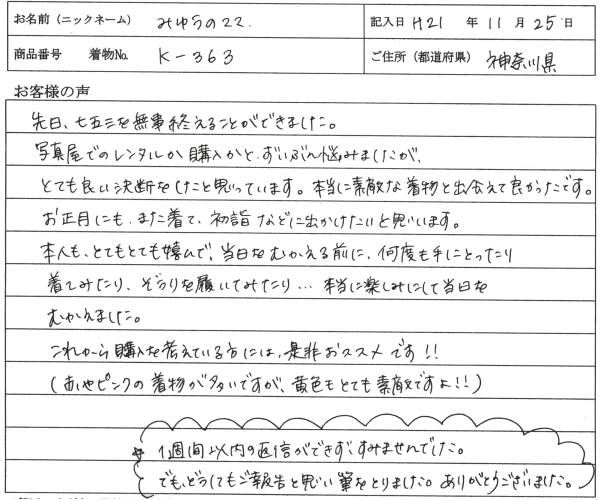 お名前（ニックネーム） みゆうのママ. 記入日 H21 年 11 月 25 日
商品番号 着物No. K-363 ご住所（都道府県） 神奈川県
お客様の声
先日、七五三を無事終えることができました。
写真屋でのレンタルか購入かと、ずいぶん悩みましたが、
とても良い決断をしたと思っています。本当に素敵な着物と出会えて良かったです。
お正月にも、また着て、初詣などに出かけたいと思います。
本人も、とてもとても嬉んで、当日をむかえる前に、何度も手にとったり
着てみたり、ぞうりを履いてみたり… 本当に楽しみにして当日を
むかえました。
これから購入を考えている方には、是非おススメです!!
(赤やピンクの着物が多いですが、黄色もとても素敵ですよ!!)
1週間以内の返信ができず、すみませんでした。
でも、どうしてもご報告と思い筆をとりました。ありがとうございました。